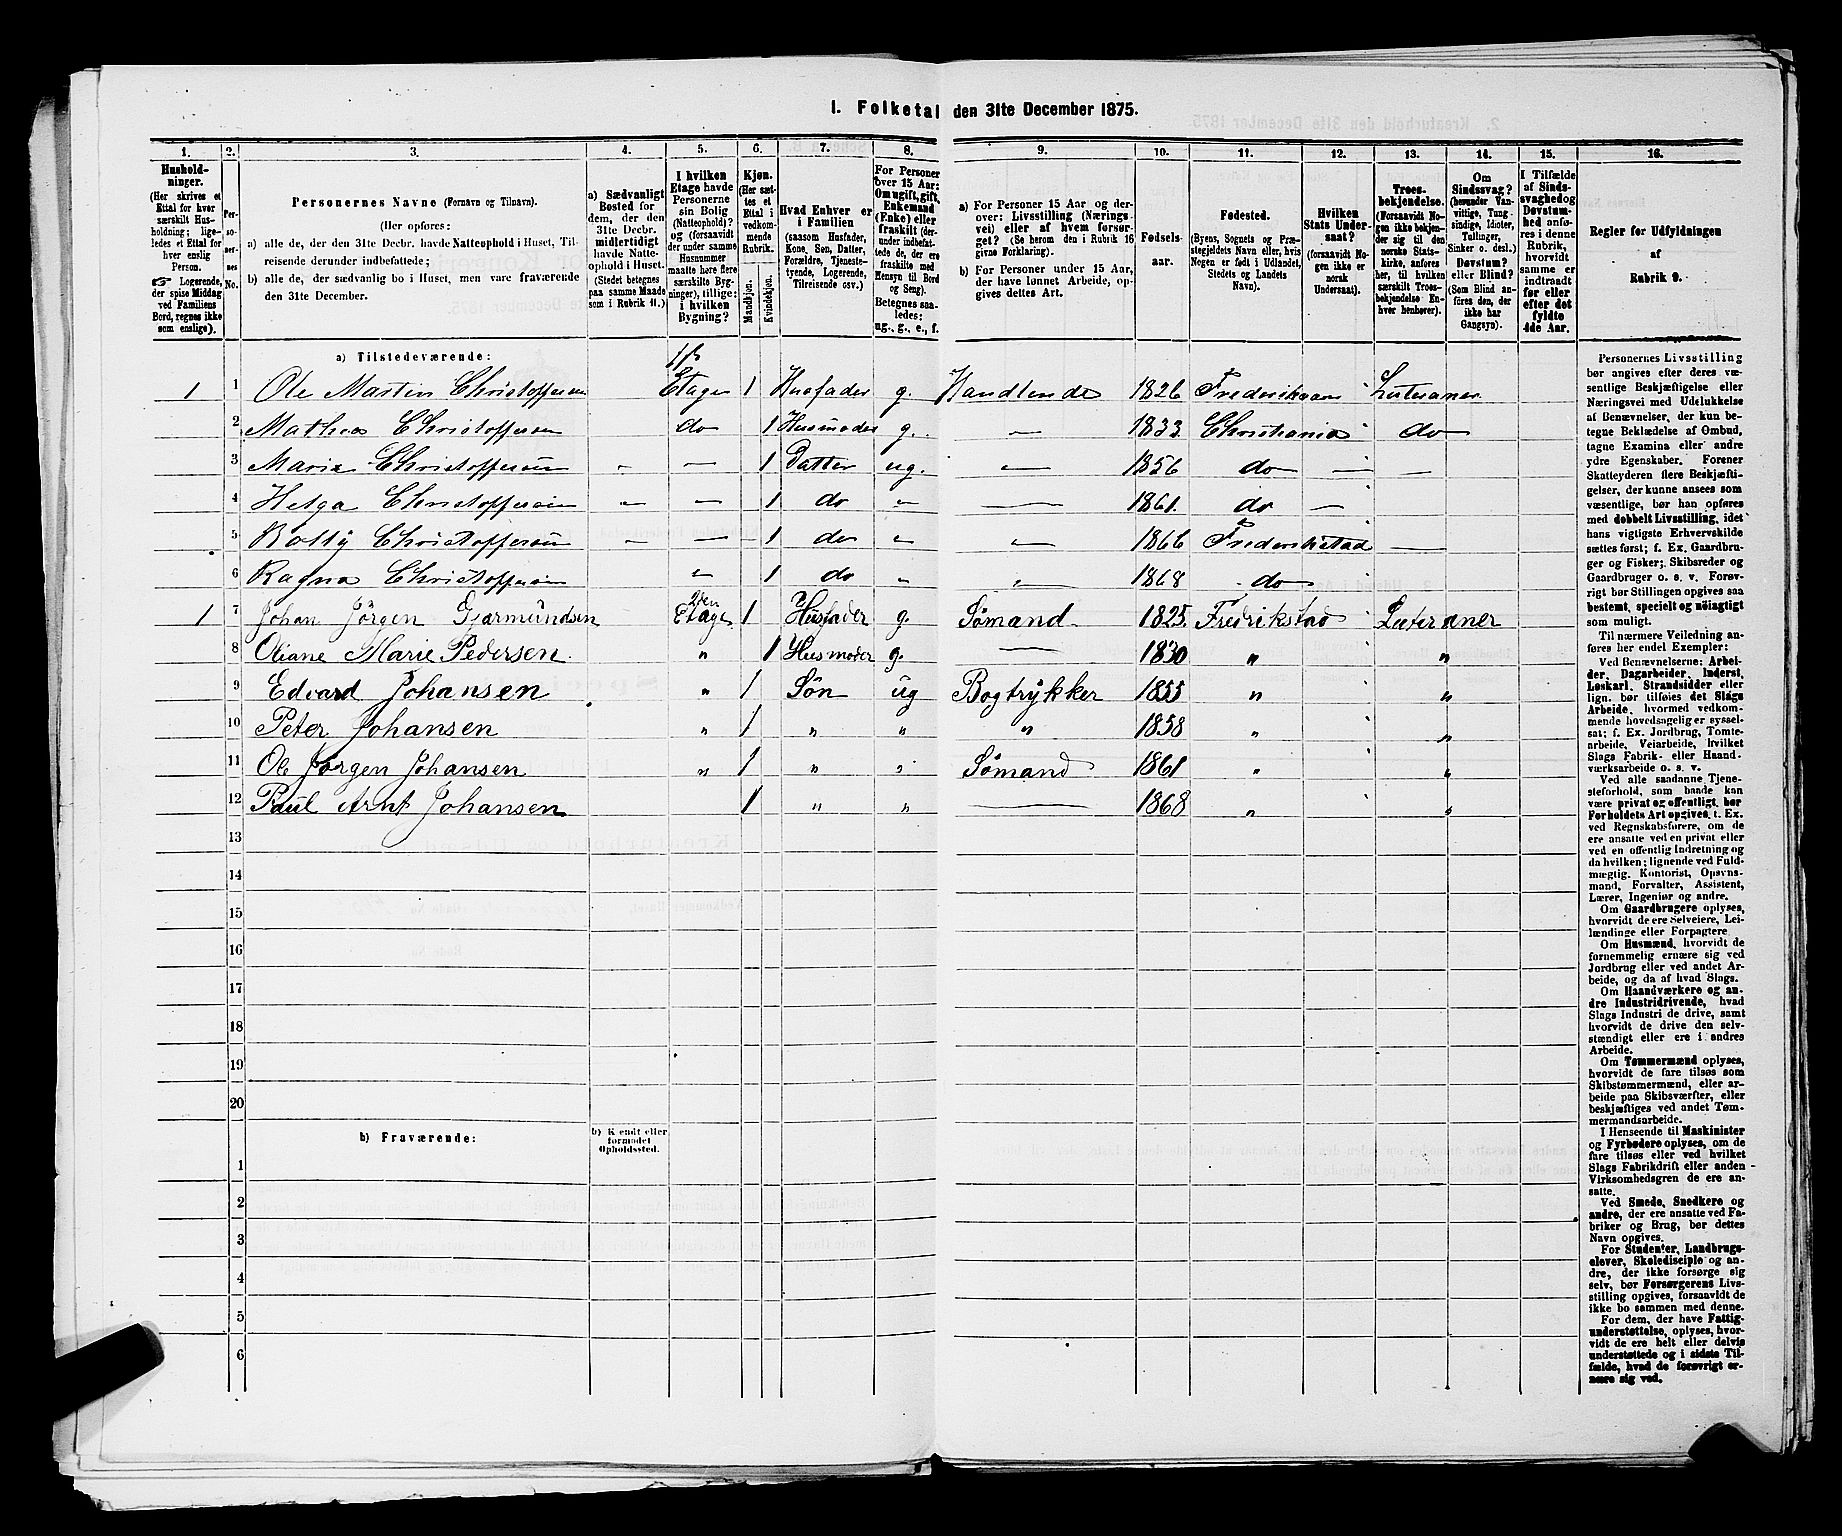 1. Folketal den 31te December 1875.
1. 2. 3. 4. 5. 6. 7. 8. 9. 10. 11. 12. 13. 14. 15. 16.
Husholdninger.
(Her skrives et
Ettal for hver
særskilt Husholdning; ligeledes
et Ettal for
hver enslig
Person.
Logerende,
der spise Middag
ved Familiens
Bord, regnes ikke
som enslige).
Personernes No.
Personernes Navne (Fornavn og Tilnavn).
(Her opføres:
a) alle de, der den 31te Decbr. havde Natteophold i Huset, Tilreisende
derunder indbefattede;
b) alle de, der sædvanlig bo i Huset, men vare fraværende
den 31te December.
a) Sædvanligt
Bosted for
dem, der den
31te Decbr.
midlertidigt
havde Natteophold
i Huset.
(Stedet betegnes
paa samme Maade
som i Rubrik 11.)
I hvilken
Etage havde
Personerne
sin Bolig
(Natteophold)?
og (forsaavidt
der under samme
Husnummer
maatte høre flere
særskilte Bygninger),
tillige:
i hvilken
Bygning?
Kjøn.
(Her sættes
et
Ettal i
vedkommende
Rubrik.
Mandkjøn.
Kvindekjøn.
Hvad Enhver er
i Familien
(saasom Husfader,
Kone, Søn, Datter,
Forældre, Tjenestetyende,
Logerende,
Tilreisende osv.)
For Personer
over 15 Aar:
Om ugift, gift,
Enkemand
(Enke) eller
fraskilt (derunder
indbefattede
de, der ere
fraskilte med
Hensyn til Bord
og Seng).
Betegnes saaledes:
ug., g., e., f.
a) For Personer 15 Aar og derover:
Livsstilling (Næringsvei)
eller af hvem forsørget?
(Se herom den i Rubrik 16
givne Forklaring).
b) For Personer under 15 Aar,
der have lønnet Arbeide, opgives
dettes Art.
Fødselsaar.
Fødested.
(Byens, Sognets og Præstegjeldets
Navn eller, hvis
Nogen er født i Udlandet,
Stedets og Landets
Navn).
Hvilken
Stats Undersaat?
(forsaavidt Nogen
ikke er
norsk
Undersaat).
Troesbekjendelse.
(Forsaavidt Nogen
ikke bekjender
sig til den
norske Statskirke,
anføres
her, til hvilken
særskilt Troesbekjendelse
Enhver
henhører).
Om
Sindssvag?
(herunder Vanvittige,
Tungsindige,
Idioter,
Tullinger,
Sinker o. desl.)
Døvstum?
eller Blind?
(Som Blind anføres
den, der
ikke har
Gangsyn).
I Tilfælde
af Sindssvaghed
og
Døvstumhed
anføres
i denne
Rubrik,
hvorvidt
samme er
indtraadt
før eller
efter det
fyldte
4de Aar.
Regler for Udfyldningen
af
Rubrik 9.
a) Tilstedeværende:
1 1 Ole Martin Christoffersen Etage 1 Husfader g. Handlende 1826 Luteraner
2 Mathea Christoffersen do 1 Husmoder g. — 1833 Christiania do
3 Maria Christoffersen „ — 1 Datter ug. — 1856 do — —
4 Helga Christoffersen „ — 1 do „ — 1861. do —
5 Christoffersen — — 1 do „ „ 1866 Frederikstad —
6 Ragna Christoffersen „ 1 do „ „ 1868 do
1 7 Johan Jörgen Gjermundsen 2den Etage 1 Husfader g. Sømand 1825 Fredrikstad Luteraner
8 Oliane Marie Pedersen „ 1 Husmoder g. — 1830 „ „
9 Edvard Johansen „ 1 Søn ug Bogtrykker 1855 „ „
10 Peter Johansen „ 1 „ „ „ 1858 „ „
11 Ole Jørgen Johansen „ 1 „ „ Sømand 1861 „ „
12 Paul Arnt Johansen 1 „ „ — 1868 „ „
13
14
15
16
17
18
19
20
b) Fraværende:
b) Kjendt eller
formodet
Opholdssted.
1
2
3
4
5
6
Personernes Livsstilling
bør angives efter deres væsentlige
Beskjæftigelse eller
Næringsvei med Udelukkelse
af Benævnelser, der kun betegne
Beklædelse af Ombud,
tagne Examina eller andre
ydre Egenskaber. Forener
Skatteyderen flere Beskjæftigelser,
der kunne ansees som
væsentlige, bør han opføres
med dobbelt Livsstilling, idet
hans vigtigste Erhvervskilde
sættes først; f. Ex. Gaardbruger
og Fisker; Skibsreder og
Gaardbruger o. s. v. Forøvrigt
bør Stillingen opgives saa
bestemt, specielt og nøiagtigt
som muligt.
Til nærmere Veiledning anføres
her endel Exempler:
Ved Benævnelserne: Arbeider,
Dagarbeider, Inderst,
Løskarl, Strandsidder eller
lign. bør tilføies det Slags
Arbeide, hvormed vedkommende
hovedsagelig er sysselsat;
f. Ex. Jordbrug, Tomtearbeide,
Veiarbeide, hvilket
Slags Fabrik- eller Haandværksarbeide
o. s. v.
Ved alle saadanne Tjenesteforhold,
som baade kan
være privat og offentligt, bør
Forholdets Art opgives, t. Ex.
ved Regnskabsførere, om de
ere ansatte ved en privat eller
ved en offentlig Indretning og
da hvilken; lignende ved Fuldmægtig,
Kontorist, Opsynsmand,
Forvalter, Assistent,
Lærer, Ingeniør og andre.
Om Gaardbrugere oplyses,
hvorvidt de ere Selveiere, Leilændinge
eller Forpagtere.
Om Husmænd, hvorvidt de
fornemmelig ernære sig ved
Jordbrug eller ved andet Arbeide,
og da af hvad Slags.
Om Haandværkere og andre
Industridrivende, hvad
Slags Industri de drive, samt
hvorvidt de drive den selvstændigt
eller ere i andres
Arbeide.
Om Tømmermænd oplyses,
hvorvidt de fare tilsøs som
Skibstømmermænd, eller arbeide
paa Skibsværfter, eller
beskjæftiges ved andet Tømmermandsarbeide.
I Henseende til Maskinister
og Fyrbødere oplyses, om de
fare tilsøs eller ved hvilket
Slags Fabrikdrift eller anden
Virksomhedsgren de ere ansatte.
Ved Smede, Snedkere og
andre, der ere ansatte ved Fabriker
og Brug, bør dettes
Navn opgives.
For Studenter, Landbrugselever,
Skoledisciple og andre,
der ikke forsørge sig
selv, bør Forsørgerens Livsstilling
opgives, forsaavidt de
ikke bo sammen med denne.
For dem, der have Fattigunderstøttelse,
oplyses, hvorvidt
de ere helt eller delvis
understøttede og i sidste Tilfælde,
hvad de forøvrigt ernære
sig ved.